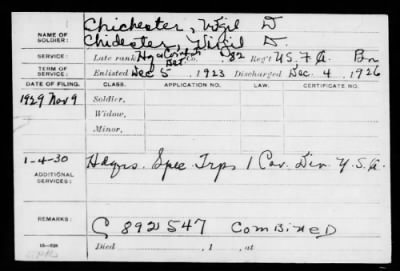 Chichester, Virgil D
NAME OF SOLDIER: Chidester, Virgil D.
SERVICE: Late rank, Hq & Combat Bat Co. 82 Reg't U.S. F A. Bn
TERM OF SERVICE: Enlisted Dec 5, 1923 Discharged Dec. 4, 1926
DATE OF FILING. CLASS. APPLICATION NO. LAW. CERTIFICATE NO.
1929 Nov 9 Soldier,
Widow,
Minor,
1-4-30 Hdqrs. Spec Trps 1 Cav. Div. U.S.A.
ADDITIONAL SERVICES:
REMARKS: C 892547 Combined
Died , 1 , at